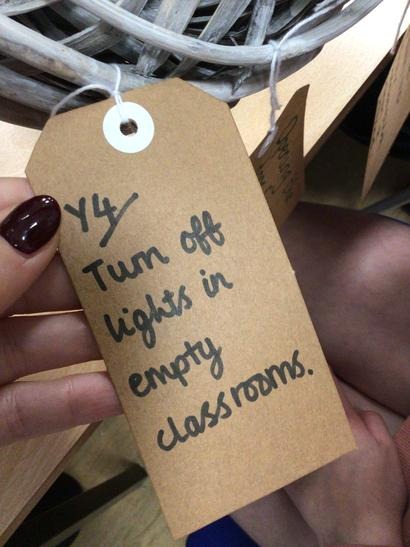 Y4/
Turn off
lights in
empty
classrooms.